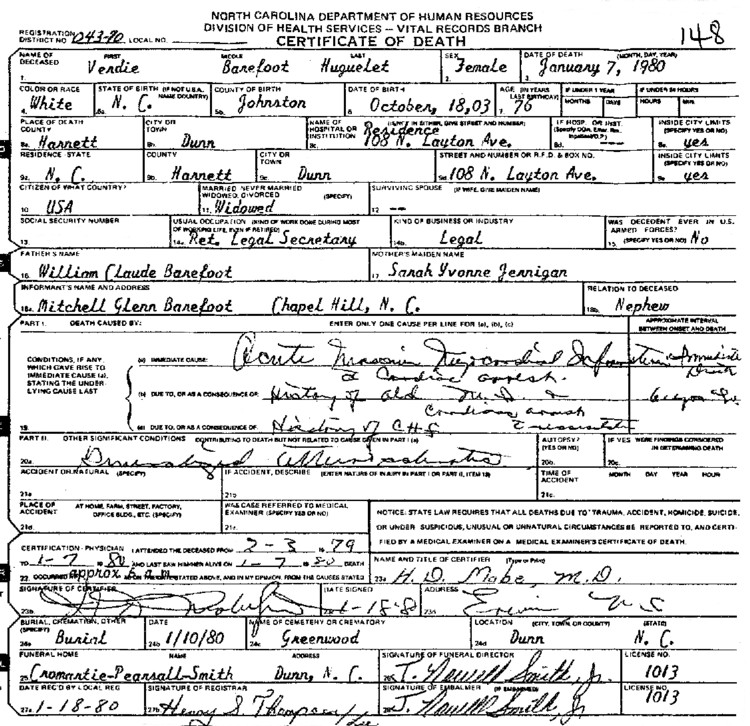 NORTH CAROLINA DEPARTMENT OF HUMAN RESOURCES
DIVISION OF HEALTH SERVICES – VITAL RECORDS BRANCH
CERTIFICATE OF DEATH
148
REGISTRATION DISTRICT NO. 043-80 LOCAL NO.
NAME OF DECEASED FIRST MIDDLE LAST SEX DATE OF DEATH (MONTH, DAY, YEAR)
1. Verdie Barefoot Huguelet 2. Female 3. January 7, 1980
COLOR OR RACE STATE OF BIRTH (IF NOT U.S.A. NAME COUNTRY) COUNTY OF BIRTH DATE OF BIRTH AGE (IN YEARS LAST BIRTHDAY) IF UNDER 1 YEAR IF UNDER 24 HOURS
MONTHS DAYS HOURS MIN.
4. White N. C. 5b. Johnston 6. October, 18, 03 76
PLACE OF DEATH COUNTY CITY OR TOWN NAME OF HOSPITAL OR INSTITUTION (IF NOT IN EITHER, GIVE STREET AND NUMBER) IF HOSP. OR INST. INSIDE CITY LIMITS (SPECIFY YES OR NO)
Residence
8a. Harnett 8b. Dunn 8c. 108 N. Layton Ave. 8d. 8e. yes
RESIDENCE STATE COUNTY CITY OR TOWN STREET AND NUMBER OR R.F.D. & BOX NO. INSIDE CITY LIMITS (SPECIFY YES OR NO)
9a. N. C. 9b. Harnett 9c. Dunn 9d. 108 N. Layton Ave. 9e. yes
CITIZEN OF WHAT COUNTRY? MARRIED NEVER MARRIED WIDOWED, DIVORCED (SPECIFY) SURVIVING SPOUSE (IF WIFE, GIVE MAIDEN NAME)
10. USA 11. Widowed 12. --
SOCIAL SECURITY NUMBER USUAL OCCUPATION (KIND OF WORK DONE DURING MOST OF WORKING LIFE, EVEN IF RETIRED) KIND OF BUSINESS OR INDUSTRY WAS DECEDENT EVER IN U.S. ARMED FORCES?
13. 14a. Ret. Legal Secretary 14b. Legal 15. (SPECIFY YES OR NO) No
FATHER'S NAME MOTHER'S MAIDEN NAME
16. William Claude Barefoot 17. Sarah Yvonne Jernigan
INFORMANT'S NAME AND ADDRESS RELATION TO DECEASED
18a. Mitchell Glenn Barefoot Chapel Hill, N. C. 18b. Nephew
PART I. DEATH CAUSED BY: ENTER ONLY ONE CAUSE PER LINE FOR (a), (b), (c) APPROXIMATE INTERVAL BETWEEN ONSET AND DEATH
CONDITIONS, IF ANY WHICH GAVE RISE TO IMMEDIATE CAUSE (a), STATING THE UNDERLYING CAUSE LAST
(a) IMMEDIATE CAUSE: Acute Massive Myocardial Infarction Immediate
Cardiac arrest. Death
(b) DUE TO, OR AS A CONSEQUENCE OF: History of old M.I. &
Cardiac arrest
19. (c) DUE TO, OR AS A CONSEQUENCE OF: History of
PART II. OTHER SIGNIFICANT CONDITIONS CONTRIBUTING TO DEATH BUT NOT RELATED TO CAUSE GIVEN IN PART I (a) AUTOPSY? (YES OR NO) IF YES WERE FINDINGS CONSIDERED IN DETERMINING DEATH
20a. 20b. 20c.
ACCIDENT OR NATURAL (SPECIFY) IF ACCIDENT, DESCRIBE (ENTER NATURE OF INJURY IN PART I OR PART II, ITEM 19) TIME OF ACCIDENT MONTH DAY YEAR HOUR
21a. 21b. 21c.
PLACE OF ACCIDENT AT HOME, FARM, STREET, FACTORY, OFFICE BLDG., ETC. (SPECIFY) WAS CASE REFERRED TO MEDICAL EXAMINER (SPECIFY YES OR NO)
21d.
NOTICE: STATE LAW REQUIRES THAT ALL DEATHS DUE TO TRAUMA, ACCIDENT, HOMICIDE, SUICIDE,
OR UNDER SUSPICIOUS, UNUSUAL OR UNNATURAL CIRCUMSTANCES BE REPORTED TO, AND CERTI-
FIED BY A MEDICAL EXAMINER ON A MEDICAL EXAMINER'S CERTIFICATE OF DEATH.
CERTIFICATION - PHYSICIAN I ATTENDED THE DECEASED FROM 2-3 19 79
TO 1-7 19 80 AND LAST SAW HIM/HER ALIVE ON 1-7 19 80 DEATH
22. OCCURRED approx ON THE DATE STATED ABOVE, AND IN MY OPINION, FROM THE CAUSES STATED
NAME AND TITLE OF CERTIFIER (Type or Print)
23a. H. D. Mabe, M.D.
SIGNATURE OF CERTIFIER DATE SIGNED ADDRESS
23b. 1-18-8 23d. Erwin N.C.
BURIAL, CREMATION, OTHER (SPECIFY) DATE NAME OF CEMETERY OR CREMATORY LOCATION (CITY, TOWN, OR COUNTY) (STATE)
24a. Burial 24b. 1/10/80 24c. Greenwood 24d. Dunn N. C.
FUNERAL HOME NAME ADDRESS SIGNATURE OF FUNERAL DIRECTOR LICENSE NO.
25. Cromartie-Pearsall-Smith Dunn, N. C. J. Nowell Smith, Jr. 1013
DATE REC'D BY LOCAL REG SIGNATURE OF REGISTRAR SIGNATURE OF EMBALMER (IF EMBALMED) LICENSE NO.
27a. 1-18-80 27b. Henry S. Thompson J. Nowell Smith, Jr. 1013